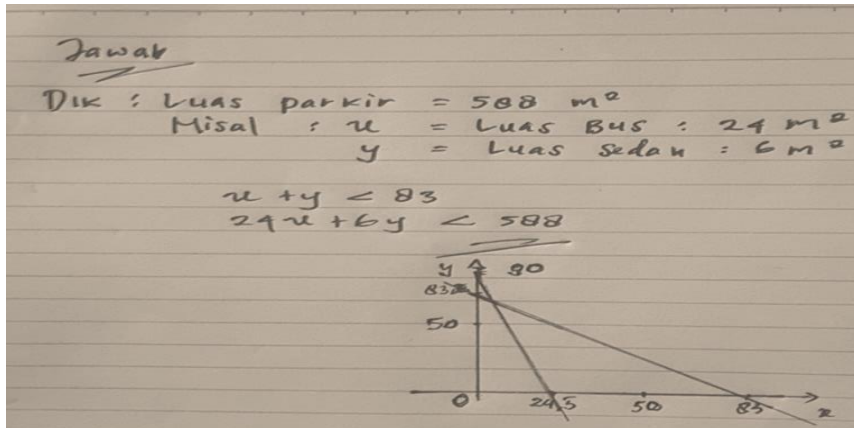 Jawab
Dik : Luas parkir = 588 m²
Misal : x = Luas Bus : 24 m²
y = Luas Sedan : 6 m²
x + y < 83
24x + 6y < 588
y 90
83
50
0 24,5 50 83 x